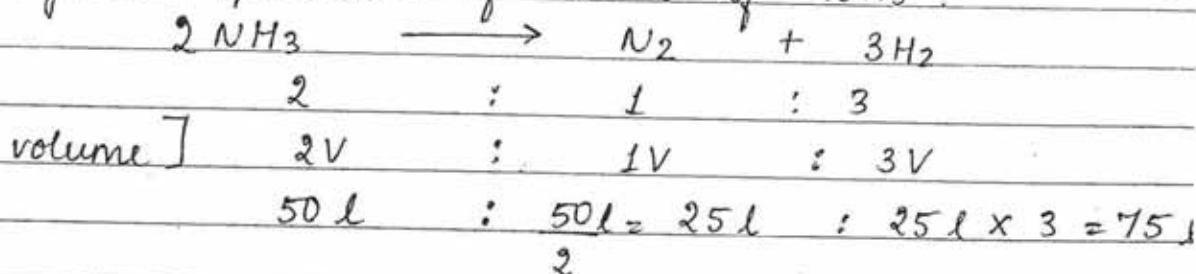 2 NH3 ⟶ N2 + 3H2
2 : 1 : 3
volume] 2V : 1V : 3V
50 l : 50l/2 = 25 l : 25 l × 3 = 75 l